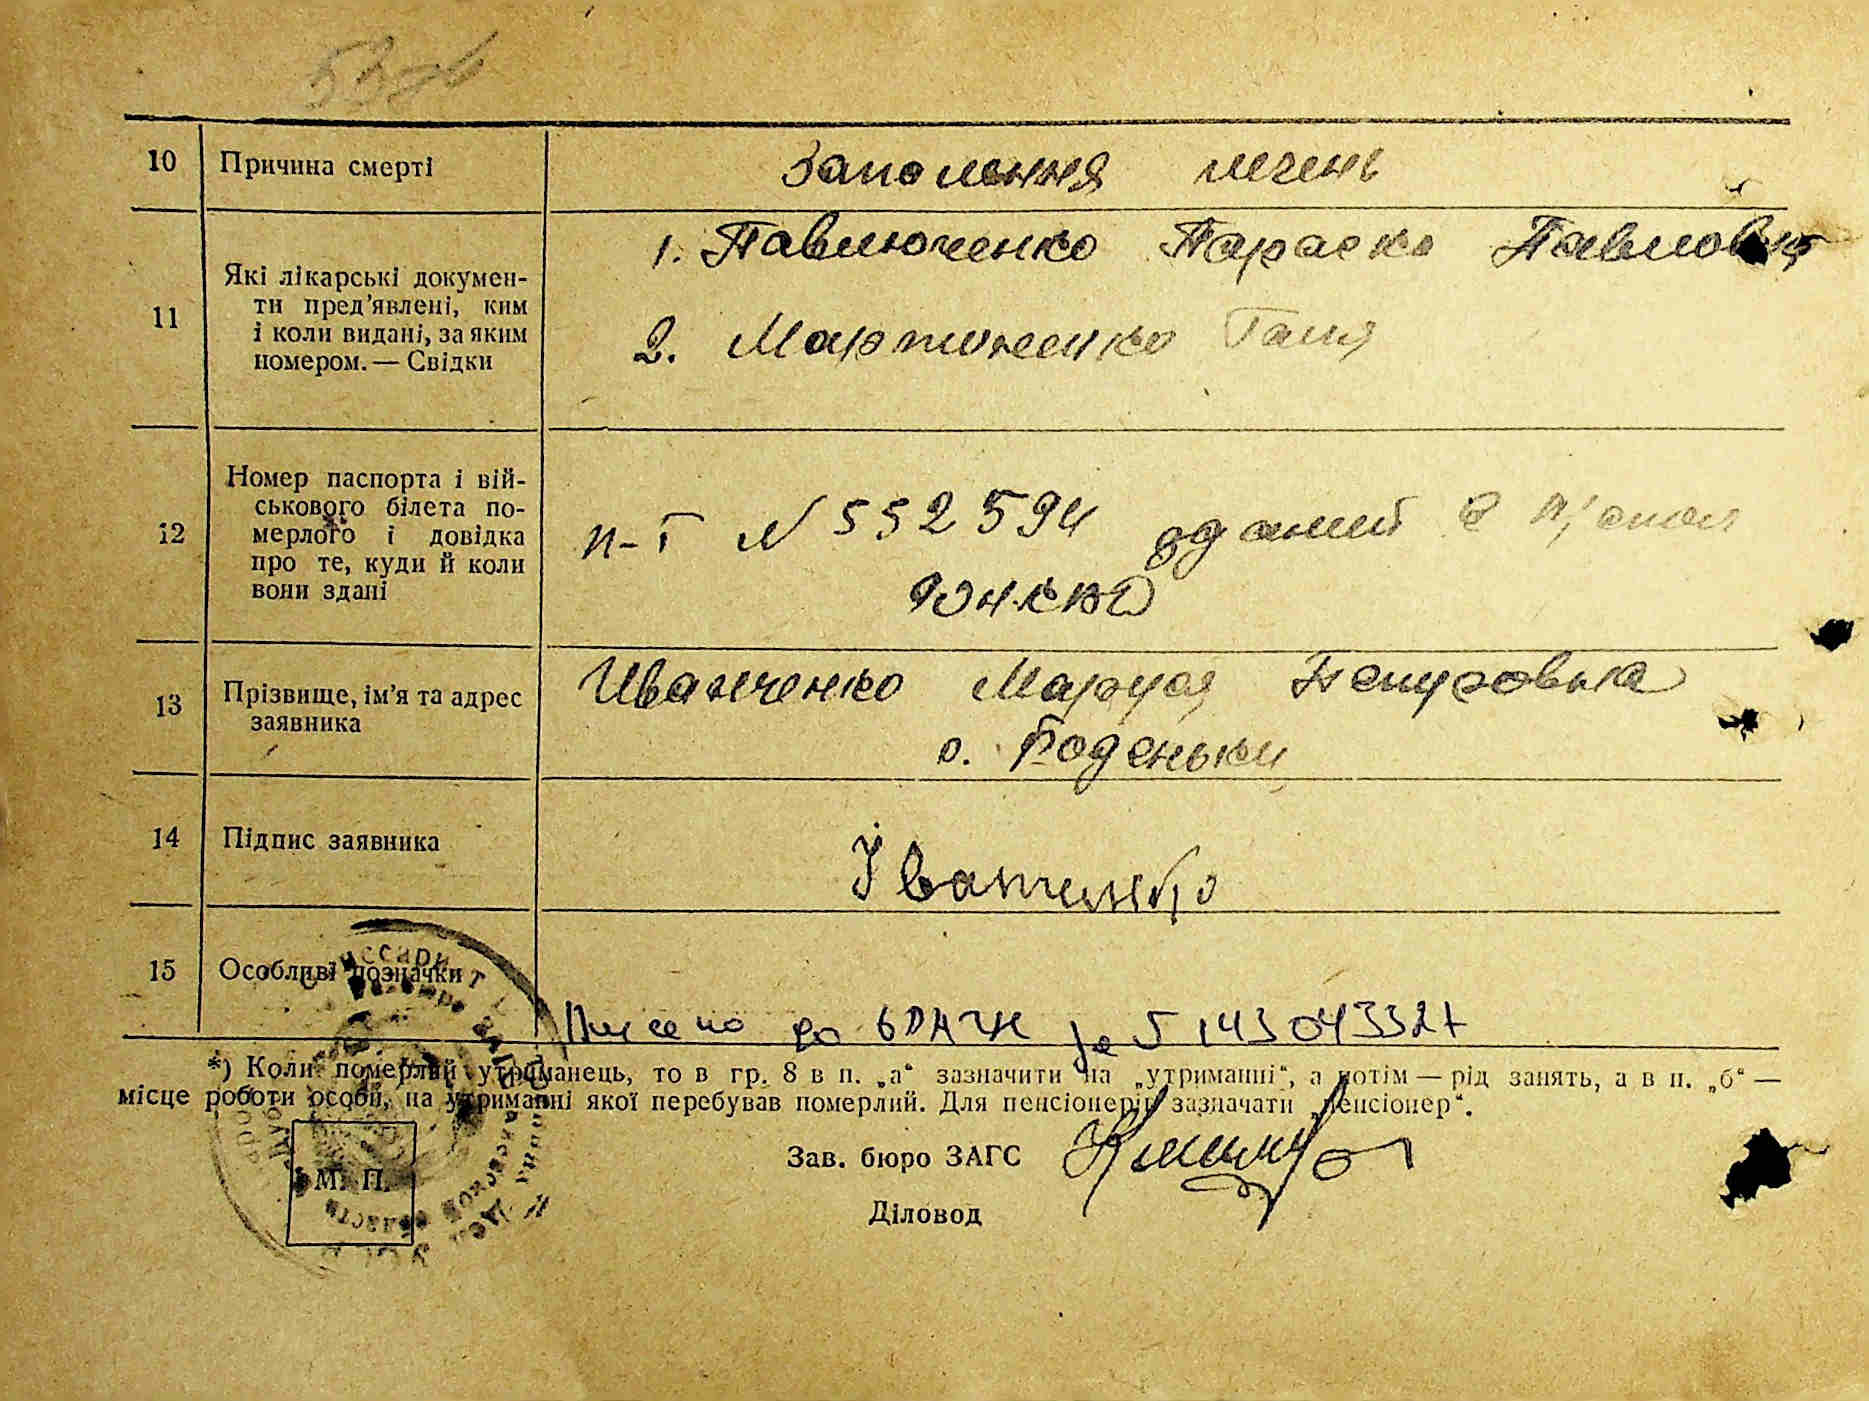 10 Причина смерті
Запалення печень
11 Які лікарські докумен-
ти пред'явлені, ким
і коли видані, за яким
номером. — Свідки
1. Павлюченко Параска Павловна
2. Мартиненко Галя
12 Номер паспорта і вій-
ськового білета по-
мерлого і довідка
про те, куди й коли
вони здані
п-т № 552594 зданий в
13 Прізвище, ім'я та адрес
заявника
Иванченко Маруся
с. Боденьки
14 Підпис заявника
Іванченко
15 Особливі позначки
до 5143043327
*) Коли померлий утриманець, то в гр. 8 в п. „а“ зазначити на „утриманні“, а потім — рід занять, а в п. „б“ —
місце роботи особи, на утриманні якої перебував померлий. Для пенсіонерів зазначати „пенсіонер“.
Зав. бюро ЗАГС
М. П.
Діловод